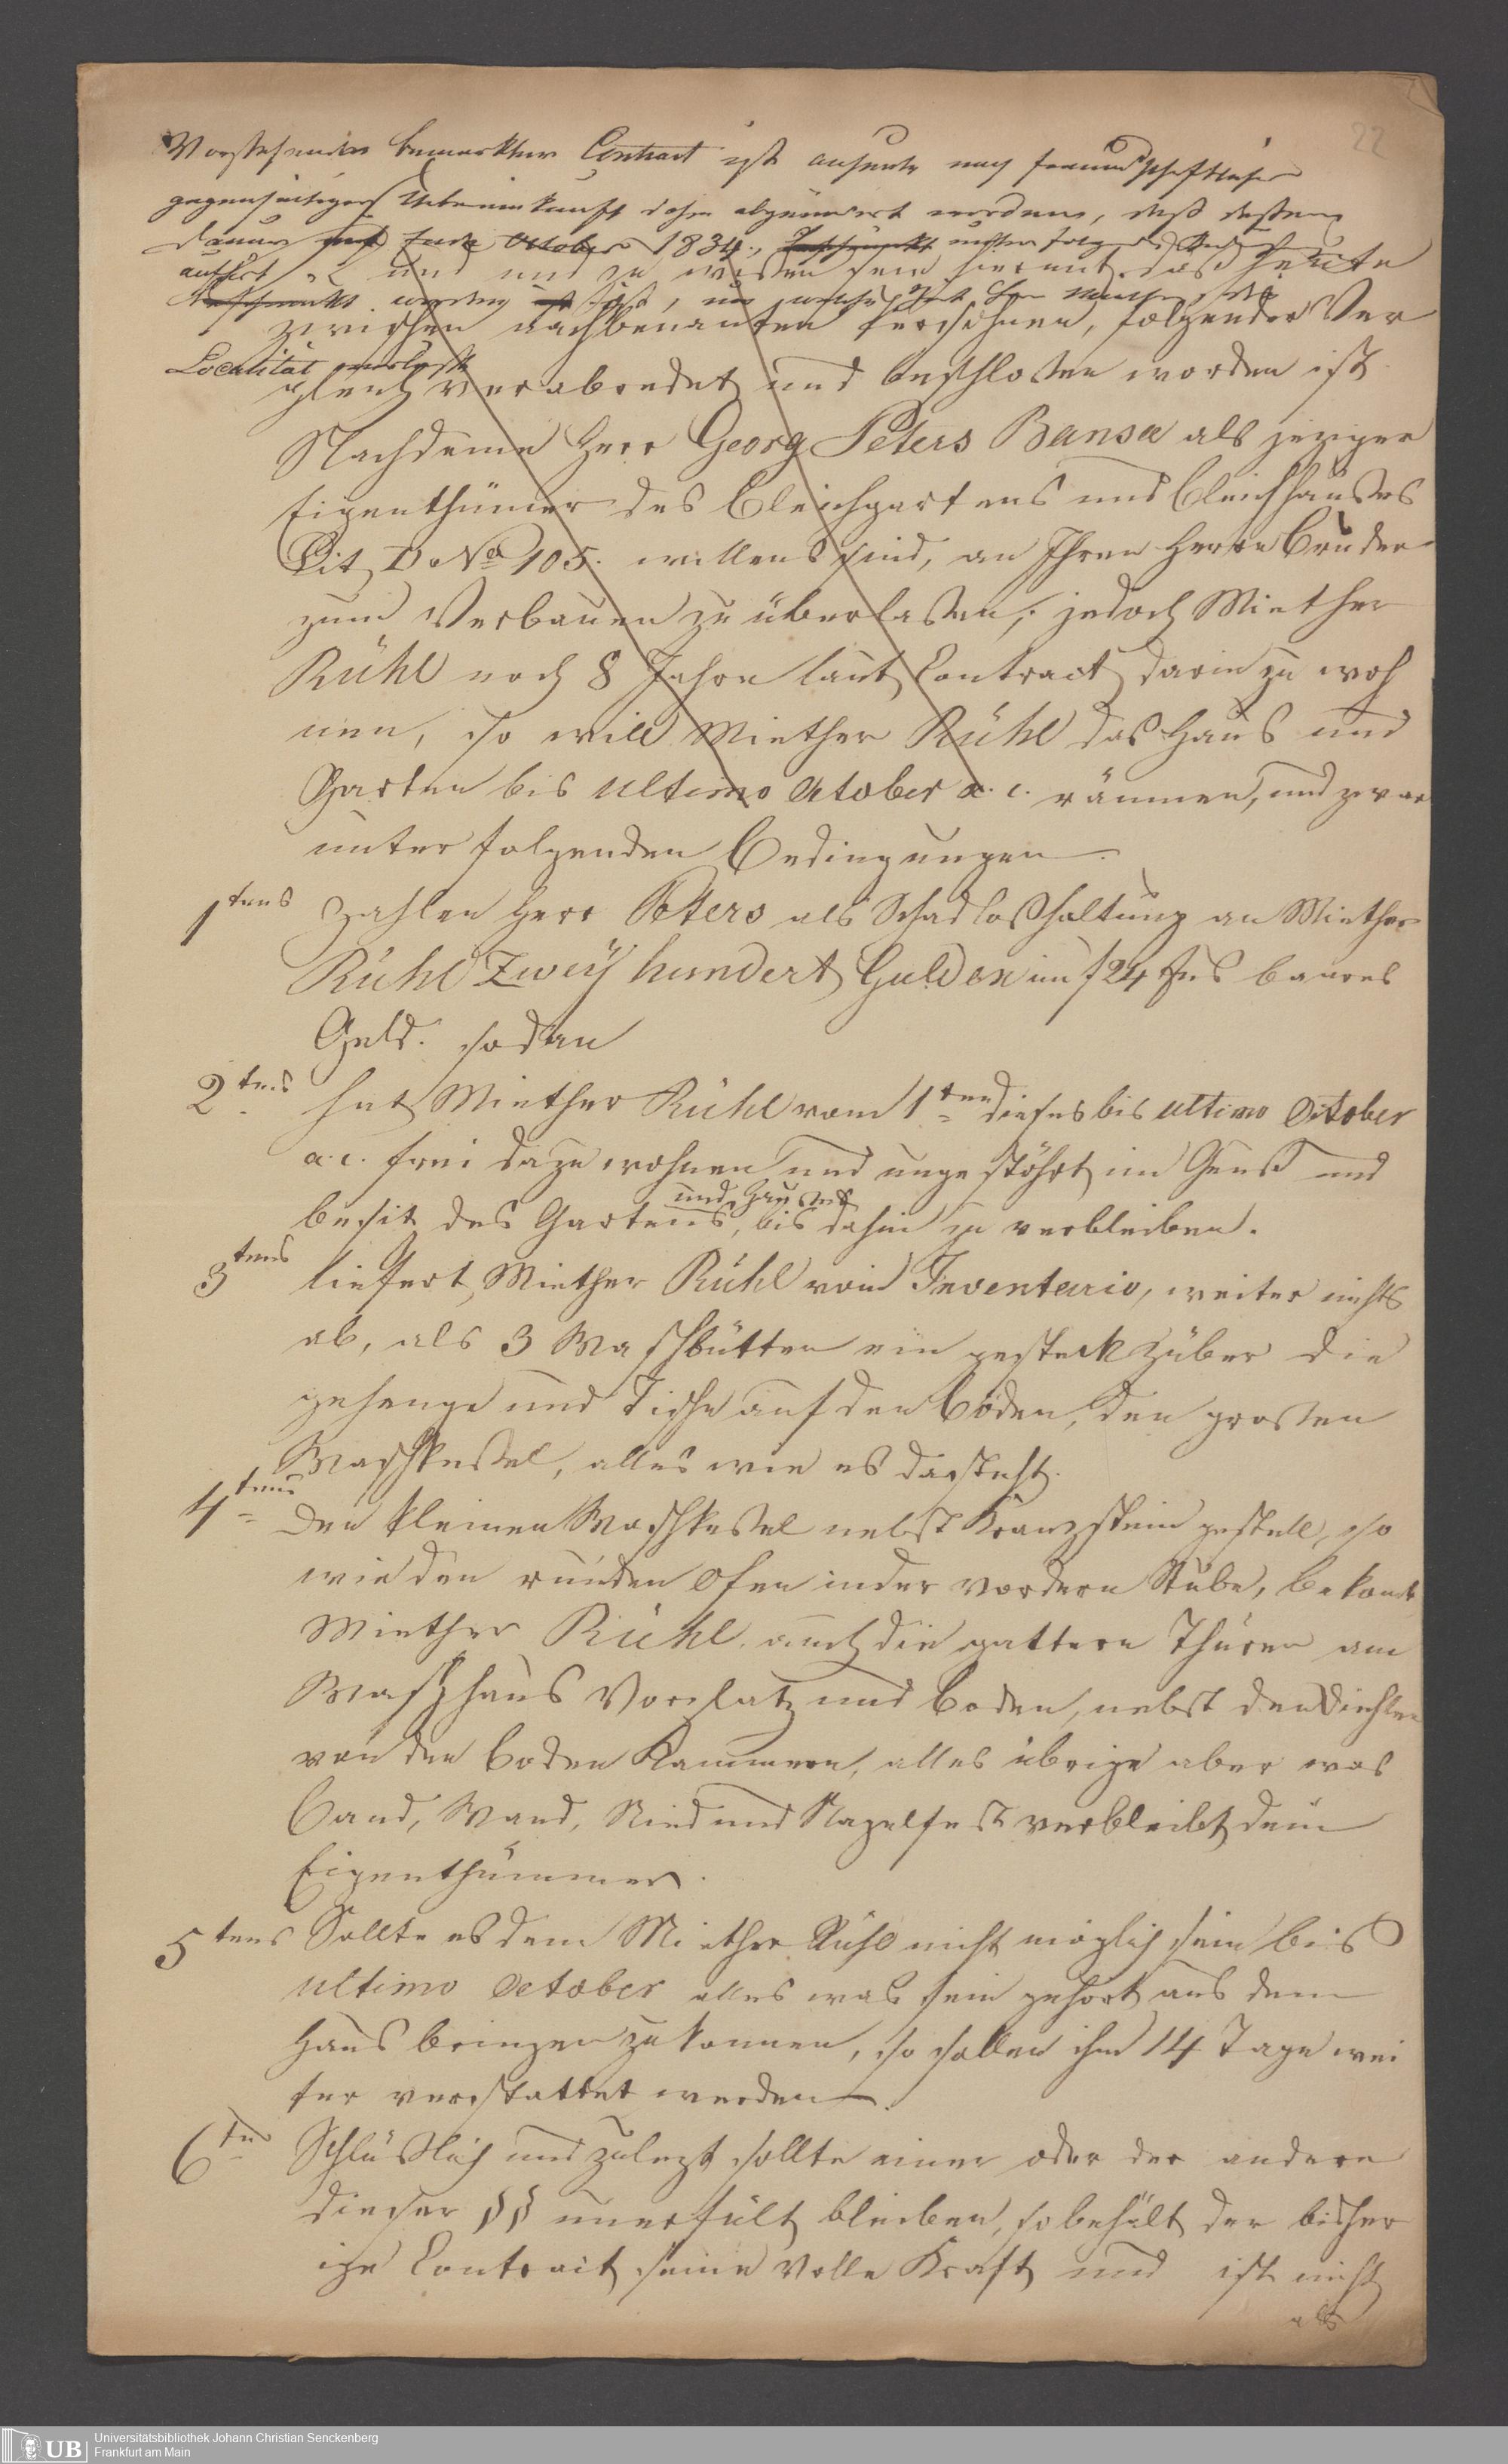 22
Vorstehender bemerkter Contract ist anheute nach freundschaftlicher
gegenseitiger Uebereinkunft dahin abgeändert worden, daß dessen
Dauer Ende October 1834.
aufhört
und zu wissen sein hiermit, daß heute
zwischen nachbenanten Persohnen, folgender Ver
Localitat verläßt
gleich verabredet und beschlossen worden ist.
Nachdeme Herr Georg Peters Bansa als jeziger
Eigenthümer des Bleichgartens und Bleichhauses
Lit D No 105. willens sind, an Ihren Herrn Bruder
zum Verbauen zu überlassen; jedoch Miether
Rühl noch 8 Jahre laut Contract darin zu woh
nen, so will Miether Rühl das Haus und
Garten bis ultimo October a. c. räumen, und zwar
unter folgenden Bedingungen.
1tens Zahlen Herr Peters als Schadloshaltung an Miether
Rühl Zweÿ hundert Gulden im f 24 Fus baares
Geld. sodan
2tens hat Miether Rühl vom 1ten dieses bis ultimo October
a. c. frei da zu wohnen und ungestöhrt im Genuß und
und Hauses
besitz des Gartens, bis dahin zu verbleiben.
3tens liefert Miether Rühl vom Inventario, weiter nichts
ab, als 3 Waschbütten ein gesteck Züber die
gehenge und Tische auf den Böden, den grossen
Waschkessel, alles wie es dasteht.
4tens Den kleinen Waschkessel nebst Kranzstein gestell, so
wie den runden Ofen in der vordern Stube, bekomt
Miether Rühl. auch die gattern Thüren am
Waschhaus Vorplatz und Boden, nebst den Diehlen
von den Boden Kammern, alles übrige aber was
Band, Wand, Nied und Nagelfest verbleibt dem
Eigenthümmer.
5tens Sollte es dem Miether Rühl nicht möglich sein bis
ultimo October alles was sein gehört aus dem
Haus bringen zu konnen, so sollen ihm 14 Tage wei
ter verstattet werden.
6tens Schlüßlich und zulezt sollte einer oder der andere
dieser §§ unerfült bleiben, so behält der bisher
ige Contract seine volle Kraft und ist nicht
als
UB
Universitätsbibliothek Johann Christian Senckenberg
Frankfurt am Main